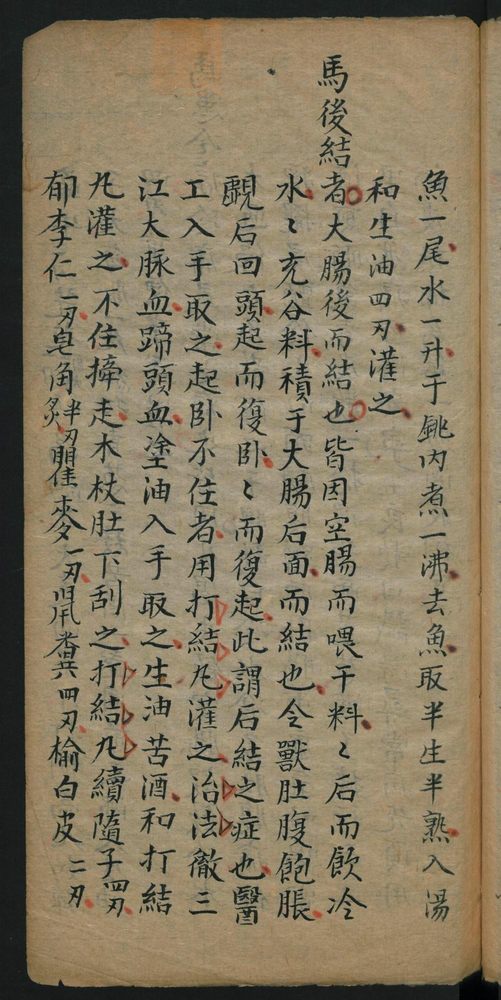 魚一尾水一升于銚内煮一沸去魚取半生半熟入湯
和生油四刄灌之
馬後結者大腸後而結也皆因空腸而喂干料〻后而飲冷
水〻充谷料積于大腸后面而結也令獸肚腹飽脹
覷后回頭起而復卧〻而復起此謂后結之症也醫
工入手取之起卧不住者用打結九灌之治法徹三
江大脉血蹄頭血塗油入手取之生油苦酒和打結
九灌之不住捧走木杖肚下刮之打結九續隨子四刄
郁李仁一刄皂角炙半刄瞿麥一刄鼠糞四刄榆白皮二刄